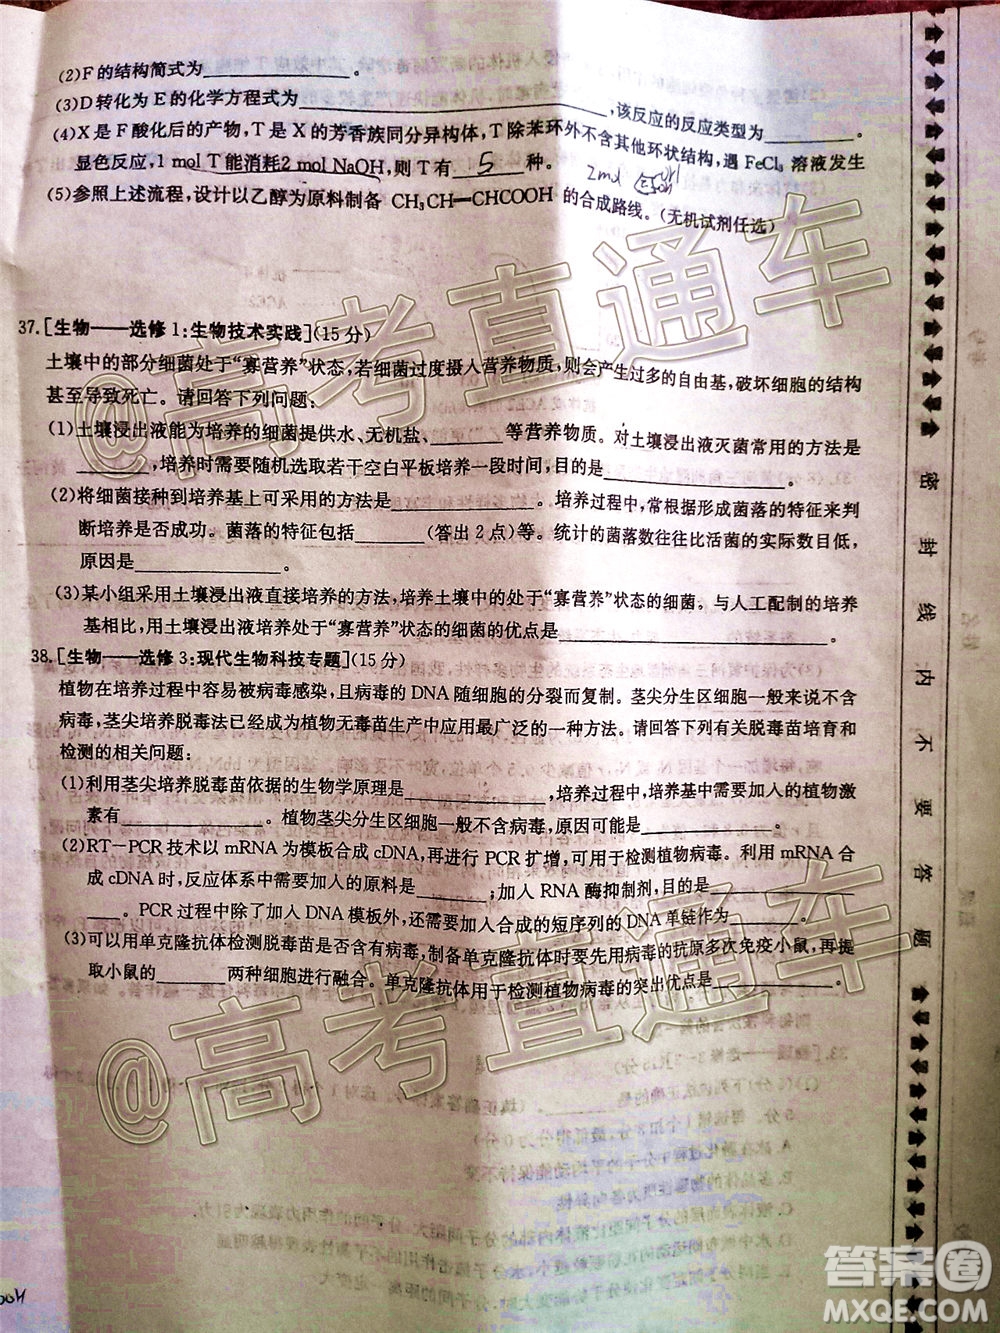 (2)F的结构简式为____________。
(3)D转化为E的化学方程式为____________,该反应的反应类型为____________。
(4)X是F酸化后的产物,T是X的芳香族同分异构体,T除苯环外不含其他环状结构,遇FeCl₃溶液发生
显色反应,1 mol T能消耗2 mol NaOH,则T有 5 种。
2mol
(5)参照上述流程,设计以乙醇为原料制备 CH₃CH—CHCOOH 的合成路线。(无机试剂任选)
37.[生物——选修1:生物技术实践](15分)
土壤中的部分细菌处于“寡营养”状态,若细菌过度摄入营养物质,则会产生过多的自由基,破坏细胞的结构
甚至导致死亡。请回答下列问题:
(1)土壤浸出液能为培养的细菌提供水、无机盐、________等营养物质。对土壤浸出液灭菌常用的方法是
____________,培养时需要随机选取若干空白平板培养一段时间,目的是____________。
(2)将细菌接种到培养基上可采用的方法是____________。培养过程中,常根据形成菌落的特征来判
断培养是否成功。菌落的特征包括____________(答出2点)等。统计的菌落数往往比活菌的实际数目低,
原因是____________。
(3)某小组采用土壤浸出液直接培养的方法,培养土壤中的处于“寡营养”状态的细菌。与人工配制的培养
基相比,用土壤浸出液培养处于“寡营养”状态的细菌的优点是____________。
38.[生物——选修3:现代生物科技专题](15分)
植物在培养过程中容易被病毒感染,且病毒的DNA随细胞的分裂而复制。茎尖分生区细胞一般不含
病毒,茎尖培养脱毒法已经成为植物无毒苗生产中应用最广泛的一种方法。请回答下列有关脱毒苗培育和
检测的相关问题:
(1)利用茎尖培养脱毒苗依据的生物学原理是____________,培养过程中需要加入的植物激
素有____________。植物茎尖分生区细胞一般不含病毒,原因可能是____________。
(2)RT-PCR技术以mRNA为模板合成cDNA,再进行PCR扩增,可用于检测植物病毒。利用mRNA合
成cDNA时,反应体系中需要加入的原料是________;加入RNA酶抑制剂,目的是____________
________。PCR过程中除了加入DNA模板外,还需要加入合成的短序列的DNA单链作为________。
(3)可以用单克隆抗体检测脱毒苗是否含有病毒,制备单克隆抗体时要先用病毒的抗原多次免疫小鼠,再提
取小鼠的____________两种细胞进行融合。单克隆抗体用于检测植物病毒的突出优点是____________。
密封线内不要答题
@高考直通车
@高考直通车
答案圈
MXQE.COM